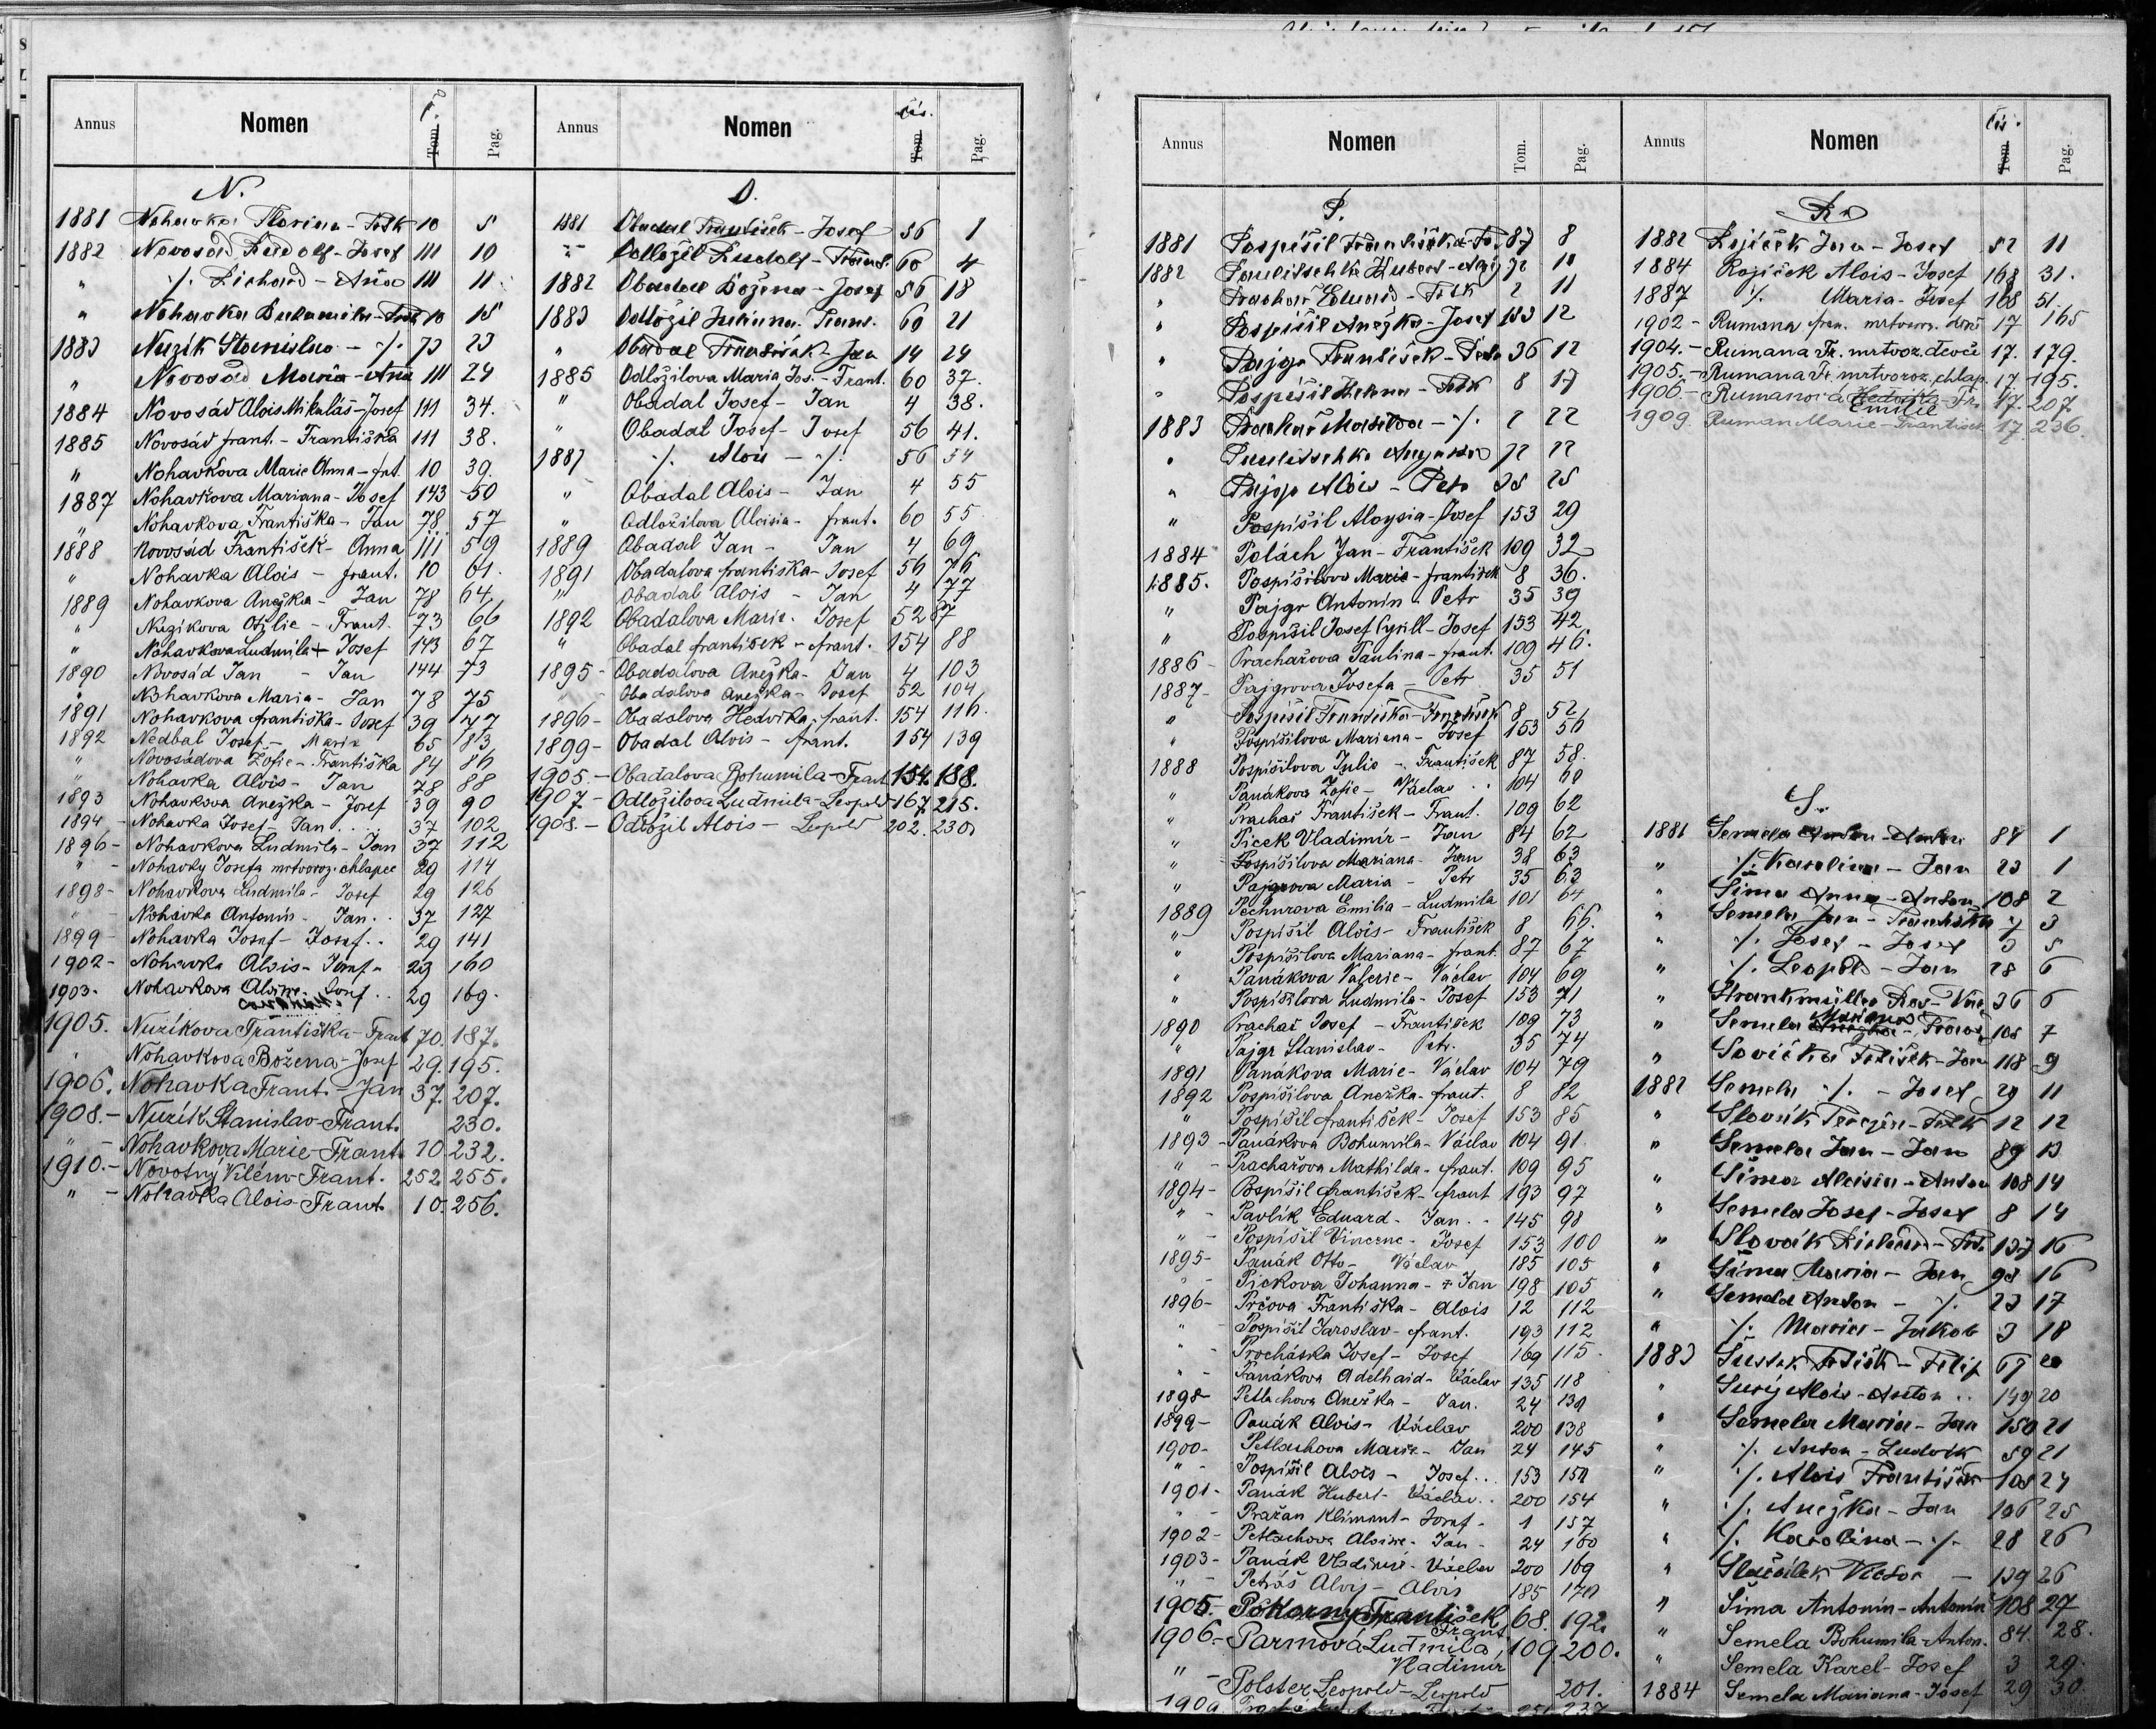 Annus Nomen Tom. Pag.
N.
1881 Nohavka Florian - Ftk 10 5
1882 Novosad Rudolf - Josef 111 10
" ·/. Richard - Ana 111 11
" Nohavka Bohumila - Ftk 10 15
1883 Nuzik Stanislav - ·/. 73 23
" Novosad Maria - Ana 111 24
1884 Novosád Alois Mikuláš - Josef 111 34.
1885 Novosád frant. - Františka 111 38.
" Nohavkova Marie Anna - frt. 10 39.
1887 Nohavkova Mariana - Josef 143 50
" Nohavkova Františka - Jan 78 57
1888 Novosád František - Anna 111 59
" Nohavka Alois - frant. 10 61.
1889 Nohavkova Anežka - Jan 78 64
" Nuzikova Otýlie - Frant. 73 66
" Nohavkova Ludmila + Josef 143 67
1890 Novosád Jan - Jan 144 73
" Nohavkova Maria - Jan 78 75
1891 Nohavkova františka - Josef 39 77
1892 Nedbal Josef - Marie 65 83
" Novosádova Žofie - Františka 84 86
" Nohavka Alois - Jan 78 88
1893 Nohavkova Anežka - Josef 39 90
1894 - Nohavka Josef - Jan 37 102
1896 - Nohavkova Ludmila - Jan 37 112
" - Nohavky Josefa mrtvoroz. chlapec 29 114
1898 - Nohavkova Ludmila - Josef 29 126
" - Nohavka Antonín - Jan 37 127
1899 - Nohavka Josef - Josef 29 141
1902 - Nohavka Alois - Josef 29 160
1903 - Nohavkova Aloisie - Josef 29 169.
1905. Nuzíkova Františka - Frant 70. 187.
" Nohavkova Božena - Josef 29. 195.
1906. Nohavka Frant. - Jan 37. 207.
1908. - Nuzík Stanislav - Frant. 230.
" - Nohavkova Marie - Frant. 10 232.
1910. - Novotný Vilém - Frant. 252. 255.
" - Nohavka Alois - Frant. 10. 256.
Annus Nomen Čís. Tom. Pag.
O.
1881 Obadal František - Josef 56 1
" Odložil Rudolf - Frant. 60 4
1882 Obadal Božena - Josef 56 18
1883 Odložil Juliana - Frant. 60 21
" Obadal František - Jan 14 24
1885 Odložilova Maria Jos. - Frant. 60 37.
" Obadal Josef - Jan 4 38.
" Obadal Josef - Josef 56 41.
1887 ·/. Alois - ·/. 56 54
" Obadal Alois - Jan 4 55
" Odložilova Aloisia - frant. 60 55
1889 Obadal Jan - Jan 4 69
1891 Obadalova františka - Josef 56 76
" Obadal Alois - Jan 4 77
1892 Obadalova Marie - Josef 52 87
" Obadal františek - frant. 154 88
1895 - Obadalova Anežka - Jan 4 103
" - Obadalova Anežka - Josef 52 104
1896 - Obadalova Hedvika - frant. 154 116.
1899 - Obadal Alois - frant. 154 139
1905. - Obadalova Bohumila - Frant. 154. 188.
1907 - Odložilova Ludmila - Leopold 167. 215.
1908. - Odložil Alois - Leopold 202. 230.
Annus Nomen Tom. Pag.
P.
1881 Pospíšil Františka - Fr. 87 8
1882 Paulitschke Hubert - 72 10
" Prachař Eduard - Ftk 2 11
" Pospíšil Anežka - Josef 153 12
" Pajgr František - Petr 36 12
" Pospíšil Helena - Ftk 8 17
1883 Prachař Matilda - ·/. 2 22
" Paulitschke Augusta 72 22
" Pajgr Alois - Petr 35 25
" Pospíšil Aloysia - Josef 153 29
1884 Polách Jan - František 109 32
1885. Pospíšilova Marie - františek 8 36.
" Pajgr Antonín - Petr 35 39
" Pospíšil Josef Cyrill - Josef 153 42
1886 - Prachařova Paulina - frant. 109 46.
1887 - Pajgrova Josefa - Petr 35 51
" Pospíšil Františka - František 8 52
" Pospíšilova Mariana - Josef 153 56
1888 Pospíšilova Julie - František 87 58.
" Panákova Žofie - Václav 104 60
" Prachař František - Frant. 109 62
" Picek Vladimír - Jan 84 62
" Pospíšilova Mariana - Jan 38 63
" Pajgrova Maria - Petr 35 63
1889 Pechurova Emilia - Ludmila 101 64
" Pospíšil Alois - František 8 66.
" Pospíšilova Mariana - frant. 87 67
" Panákova Valerie - Václav 104 69
" Pospíšilova Ludmila - Josef 153 71
1890 Prachař Josef - František 109 73
" Pajgr Stanislav - Petr. 35 74
1891 Panákova Marie - Václav 104 79
1892 Pospíšilova Anežka - frant. 8 82
" Pospíšil františek - Josef 153 85
1893 - Panákova Bohumila - Václav 104 91
" - Prachařova Mathilda - frant. 109 95
1894 - Pospíšil františek - frant 193 97
" - Pavlík Eduard - Jan 145 98
" - Pospíšil Vincenc - Josef 153 100
1895 - Panák Otto - Václav 185 105
" - Pickova Johanna - + Jan 198 105
1896 - Prčova Františka - Alois 12 112
" - Pospíšil Jaroslav - frant. 193 112
" - Procháska Josef - Josef 169 115
" - Panákova Adelhaid - Václav 135 118
1898 - Petlachova Anežka - Jan. 24 130
1899 - Panák Alois - Václav 200 138
1900 - Petlachova Marie - Jan 24 145
" - Pospíšil Alois - Josef 153 150
1901 - Panák Hubert - Václav 200 154
" - Pražan Kliment - Josef - 1 157
1902 - Petlachova Aloisie - Jan - 24 160
1903 - Panák Vladimír - Václav 200 169
" - Petráš Alois - Alois 185 170
1905. - Pokorny František Frant 68. 192.
1906. - Parmová Ludmila Vladimír 109. 200.
" - Polster Leopold - Leopold 201.
1909
Annus Nomen Čís. Tom. Pag.
R.
1882 Rojíček Jan - Josef 52 11
1884 Rojíček Alois - Josef 168 31.
1887 ·/. Maria - Josef 168 51.
1902 - Rumana fran. mrtvoroz. 17 165
1904. - Rumana Fr. mrtvoz. děvče 17. 179.
1905. - Rumana Fr. mrtvoroz. chlap. 17. 195.
1906. - Rumanova Hedvika Emilie - Fr. 17. 207
1909. Ruman Marie - František 17. 236.
S.
1881 Semela Anton - Anton 84 1
" ·/. Karolina - Jan 23 1
" Šima Anna - Anton 108 2
" Semela Jan - Františka 7 3
" ·/. Josef - Josef 3 5
" ·/. Leopold - Jan 28 6
" 36 6
" Semela Mariana - Franc. 108 7
" Sovička Ftišek - Jan 118 9
1882 Semela ·/. - Josef 29 11
" Slovák - Ftk 12 12
" Semela Jan - Jan 89 13
" Šima Aloisia - Anton 108 14
" Semela Josef - Josef 8 14
" Slovák Richard - Frt. 137 16
" Šima Maria - Jan 98 16
" Semela Anton - ·/. 23 17
" ·/. Maria - Jakob 3 18
1883 Šustek Ftišk - Filip 67 20
" Surý Alois - Anton 149 20
" Semela Maria - Jan 150 21
" ·/. Anton - Ludvík 59 21
" ·/. Alois František 108 24
" ·/. Anežka - Jan 106 25
" ·/. Karolina - ·/. 28 26
" Slaváček Victor - 139 26
" Šima Antonín - Antonín 108 27
" Semela Bohumila - Anton. 84. 28.
" Semela Karel - Josef 3 29.
1884 Semela Mariana - Josef 29 30.